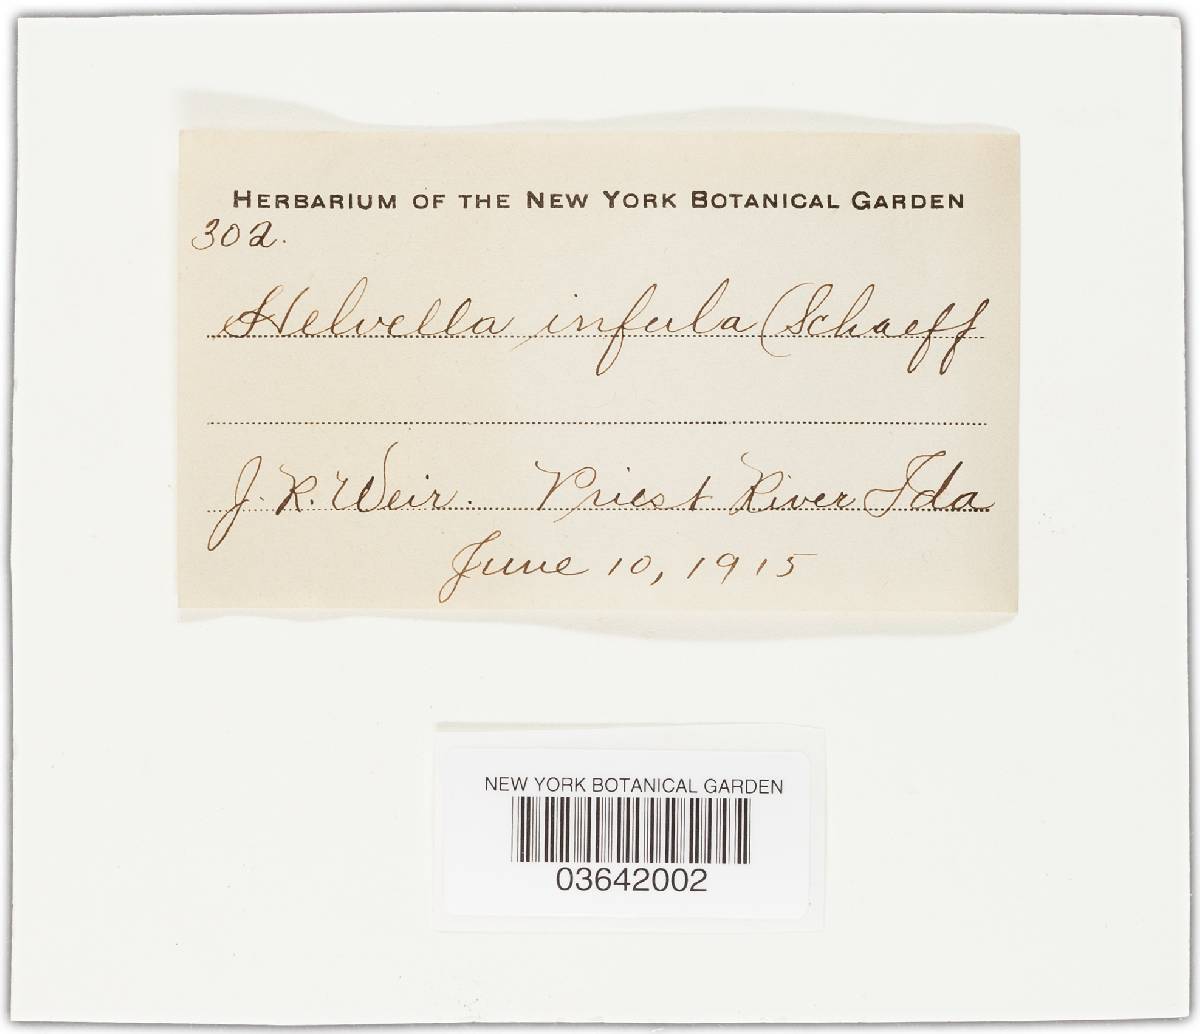 HERBARIUM OF THE NEW YORK BOTANICAL GARDEN
302.
Helvella infula (Schaeff
J. R. Weir. Priest River Ida
June 10, 1915
NEW YORK BOTANICAL GARDEN
03642002